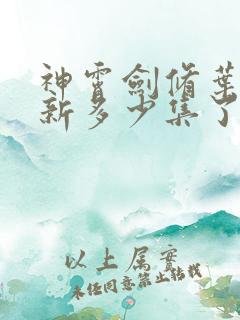 神霄劍脩葉
新多少集了
以上属实
未经同意禁止转载